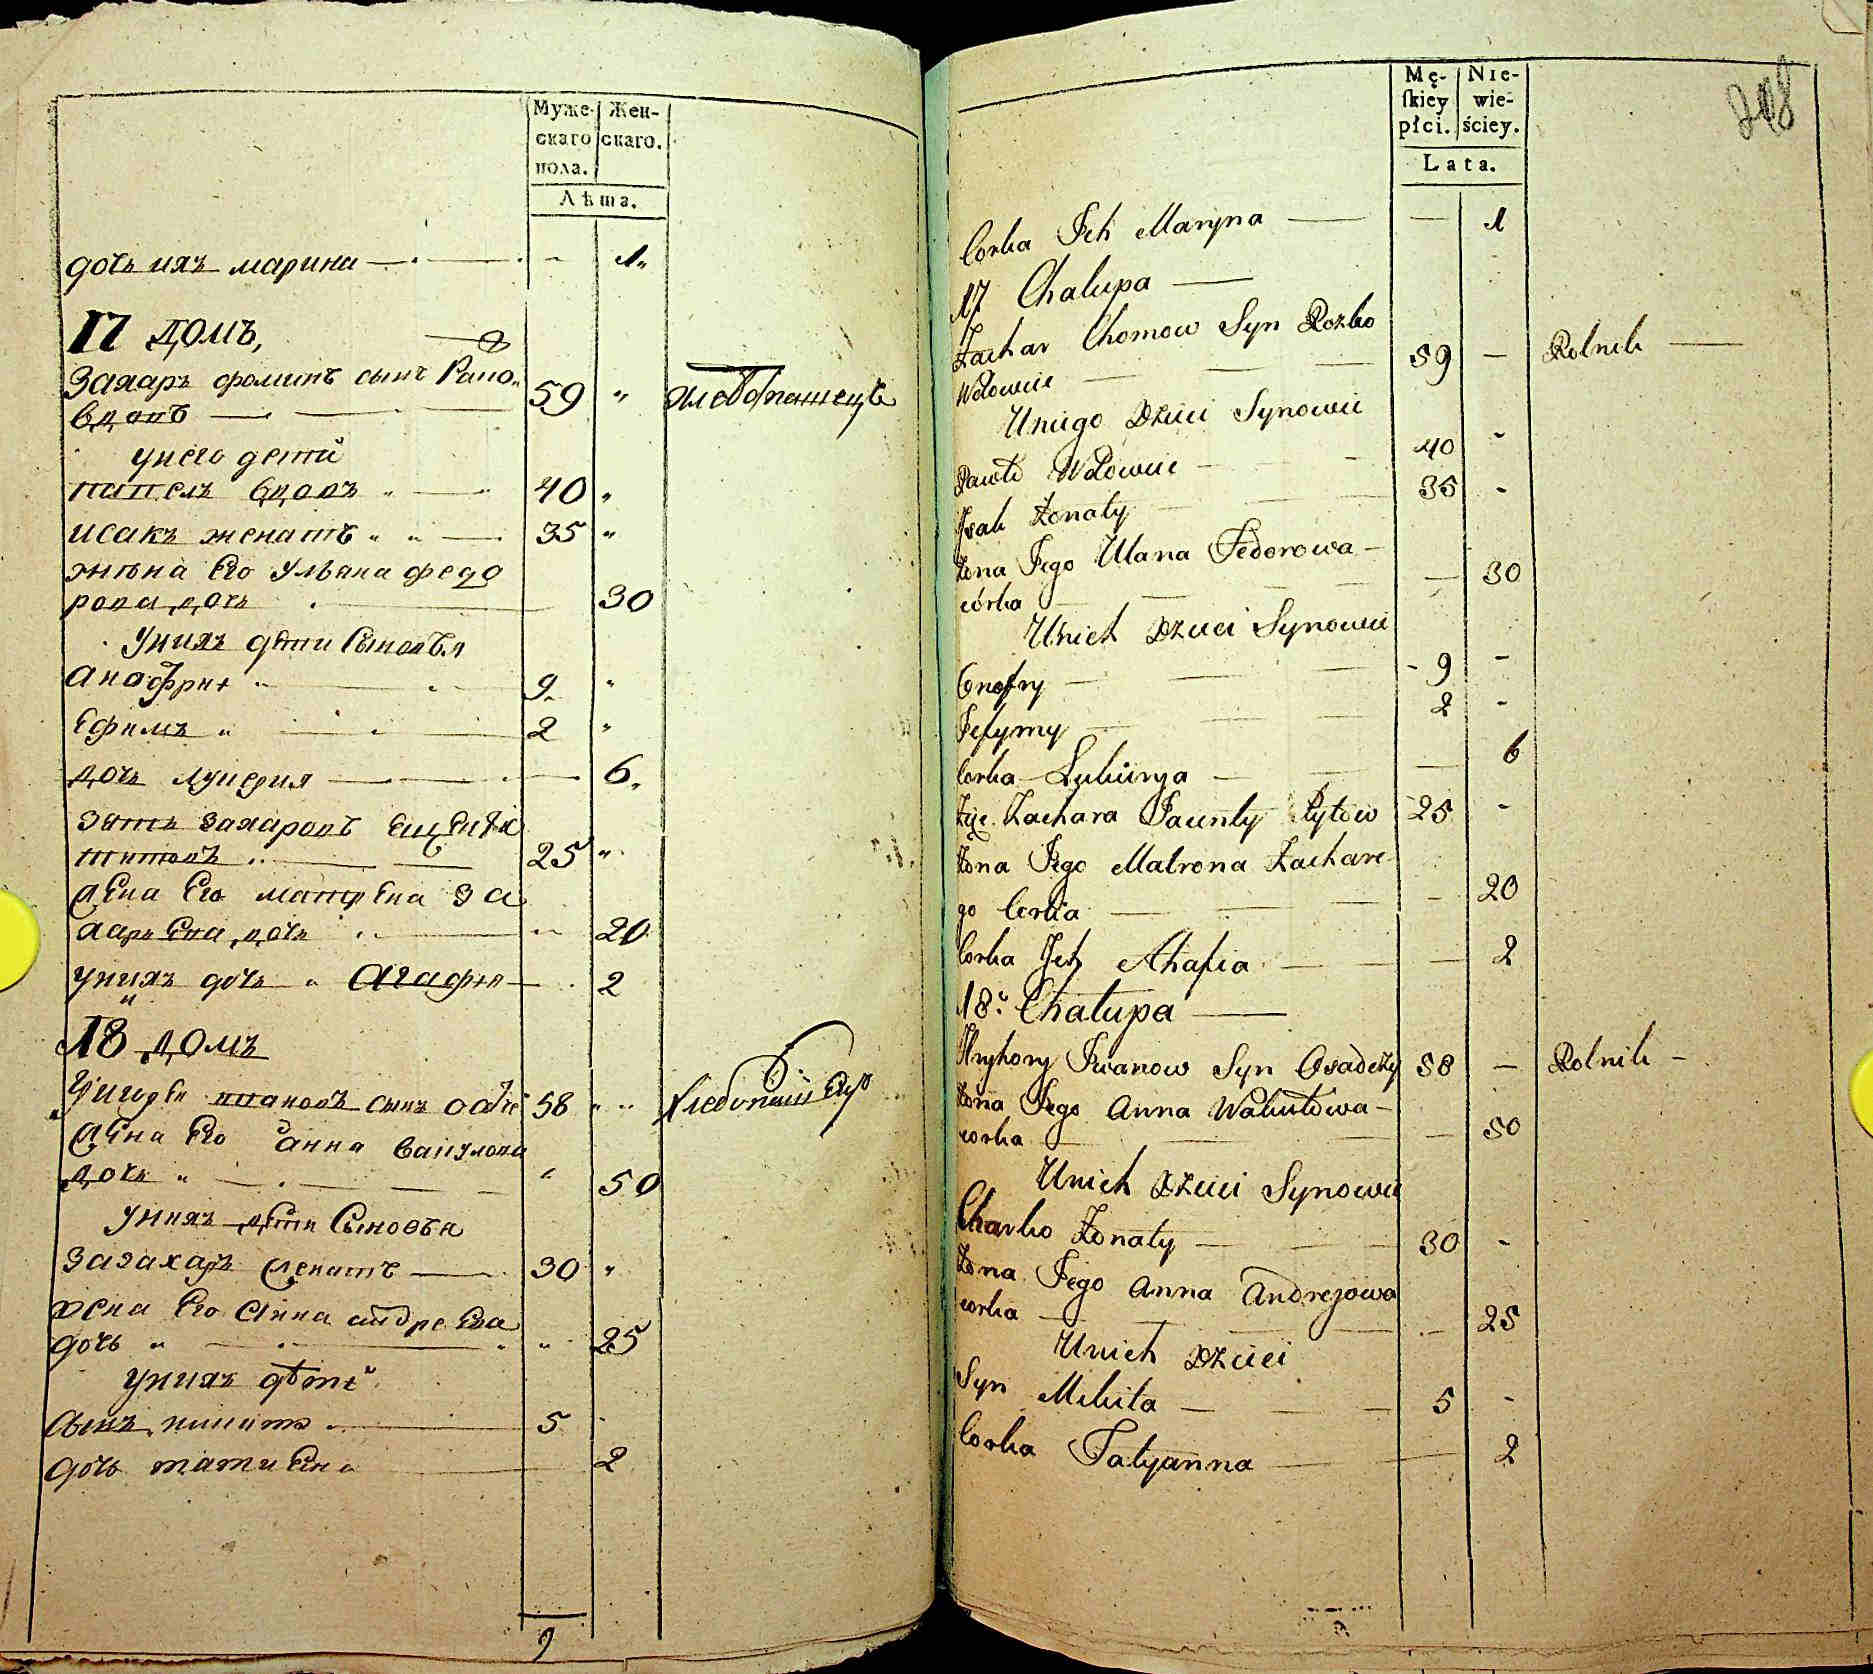 Муже-
скаго
пола.
Жен-
скаго.
Лѣта.
дочь ихъ марина 1
17 домъ,
Захаръ фоминъ сынъ
вдовъ 59 хлебопашецъ
у него дети
павелъ вдовъ 40
исакъ женатъ 35
жена Его Ульяна федо
рова дочь 30
у нихъ дети сыновья
анофри 9
Ефимъ 2
дочь лукерия 6
зять захаровъ
титовъ 25
жена Его матрена за
харьева дочь 20
у нихъ дочь агафия 2
18 домъ
Григорей ивановъ сынъ 58 хлебопашецъ
жена Его анна вакулова
дочь 50
у нихъ дети сыновья
захаръ женатъ 30
жена Его анна андреева
дочь 25
у нихъ дети
сынъ никита 5
дочь татиана 2
9
Mę-
ſkiey
płci.
Nie-
wie-
ściey.
Lata.
Corka Ich Maryna 1
17 Chalupa
Zachar Chomow Syn Rozko
Wdowiec 59 Rolnik
U niego Dzieci Synowie
Pawło Wdowiec 40
Isak Żonaty 35
Żona Jego Ulana Fedorowa
córka 30
U nich Dzieci Synowie
Onofry 9
Jefymy 2
Corka Lukierya 6
Zięć Zachara Jaunty Tytow 25
Żona Jego Matrona Zachare
go Corka 20
Corka Ich Ahafia 2
18. Chałupa
Hryhory Iwanow Syn Osadczy 58 Rolnik
Żona Jego Anna Wakułowa
corka 50
U nich Dzieci Synowie
Charko Żonaty 30
Żona Jego Anna Andrejowa
corka 25
U nich Dzieci
Syn Mikita 5
Corka Tatyanna 2